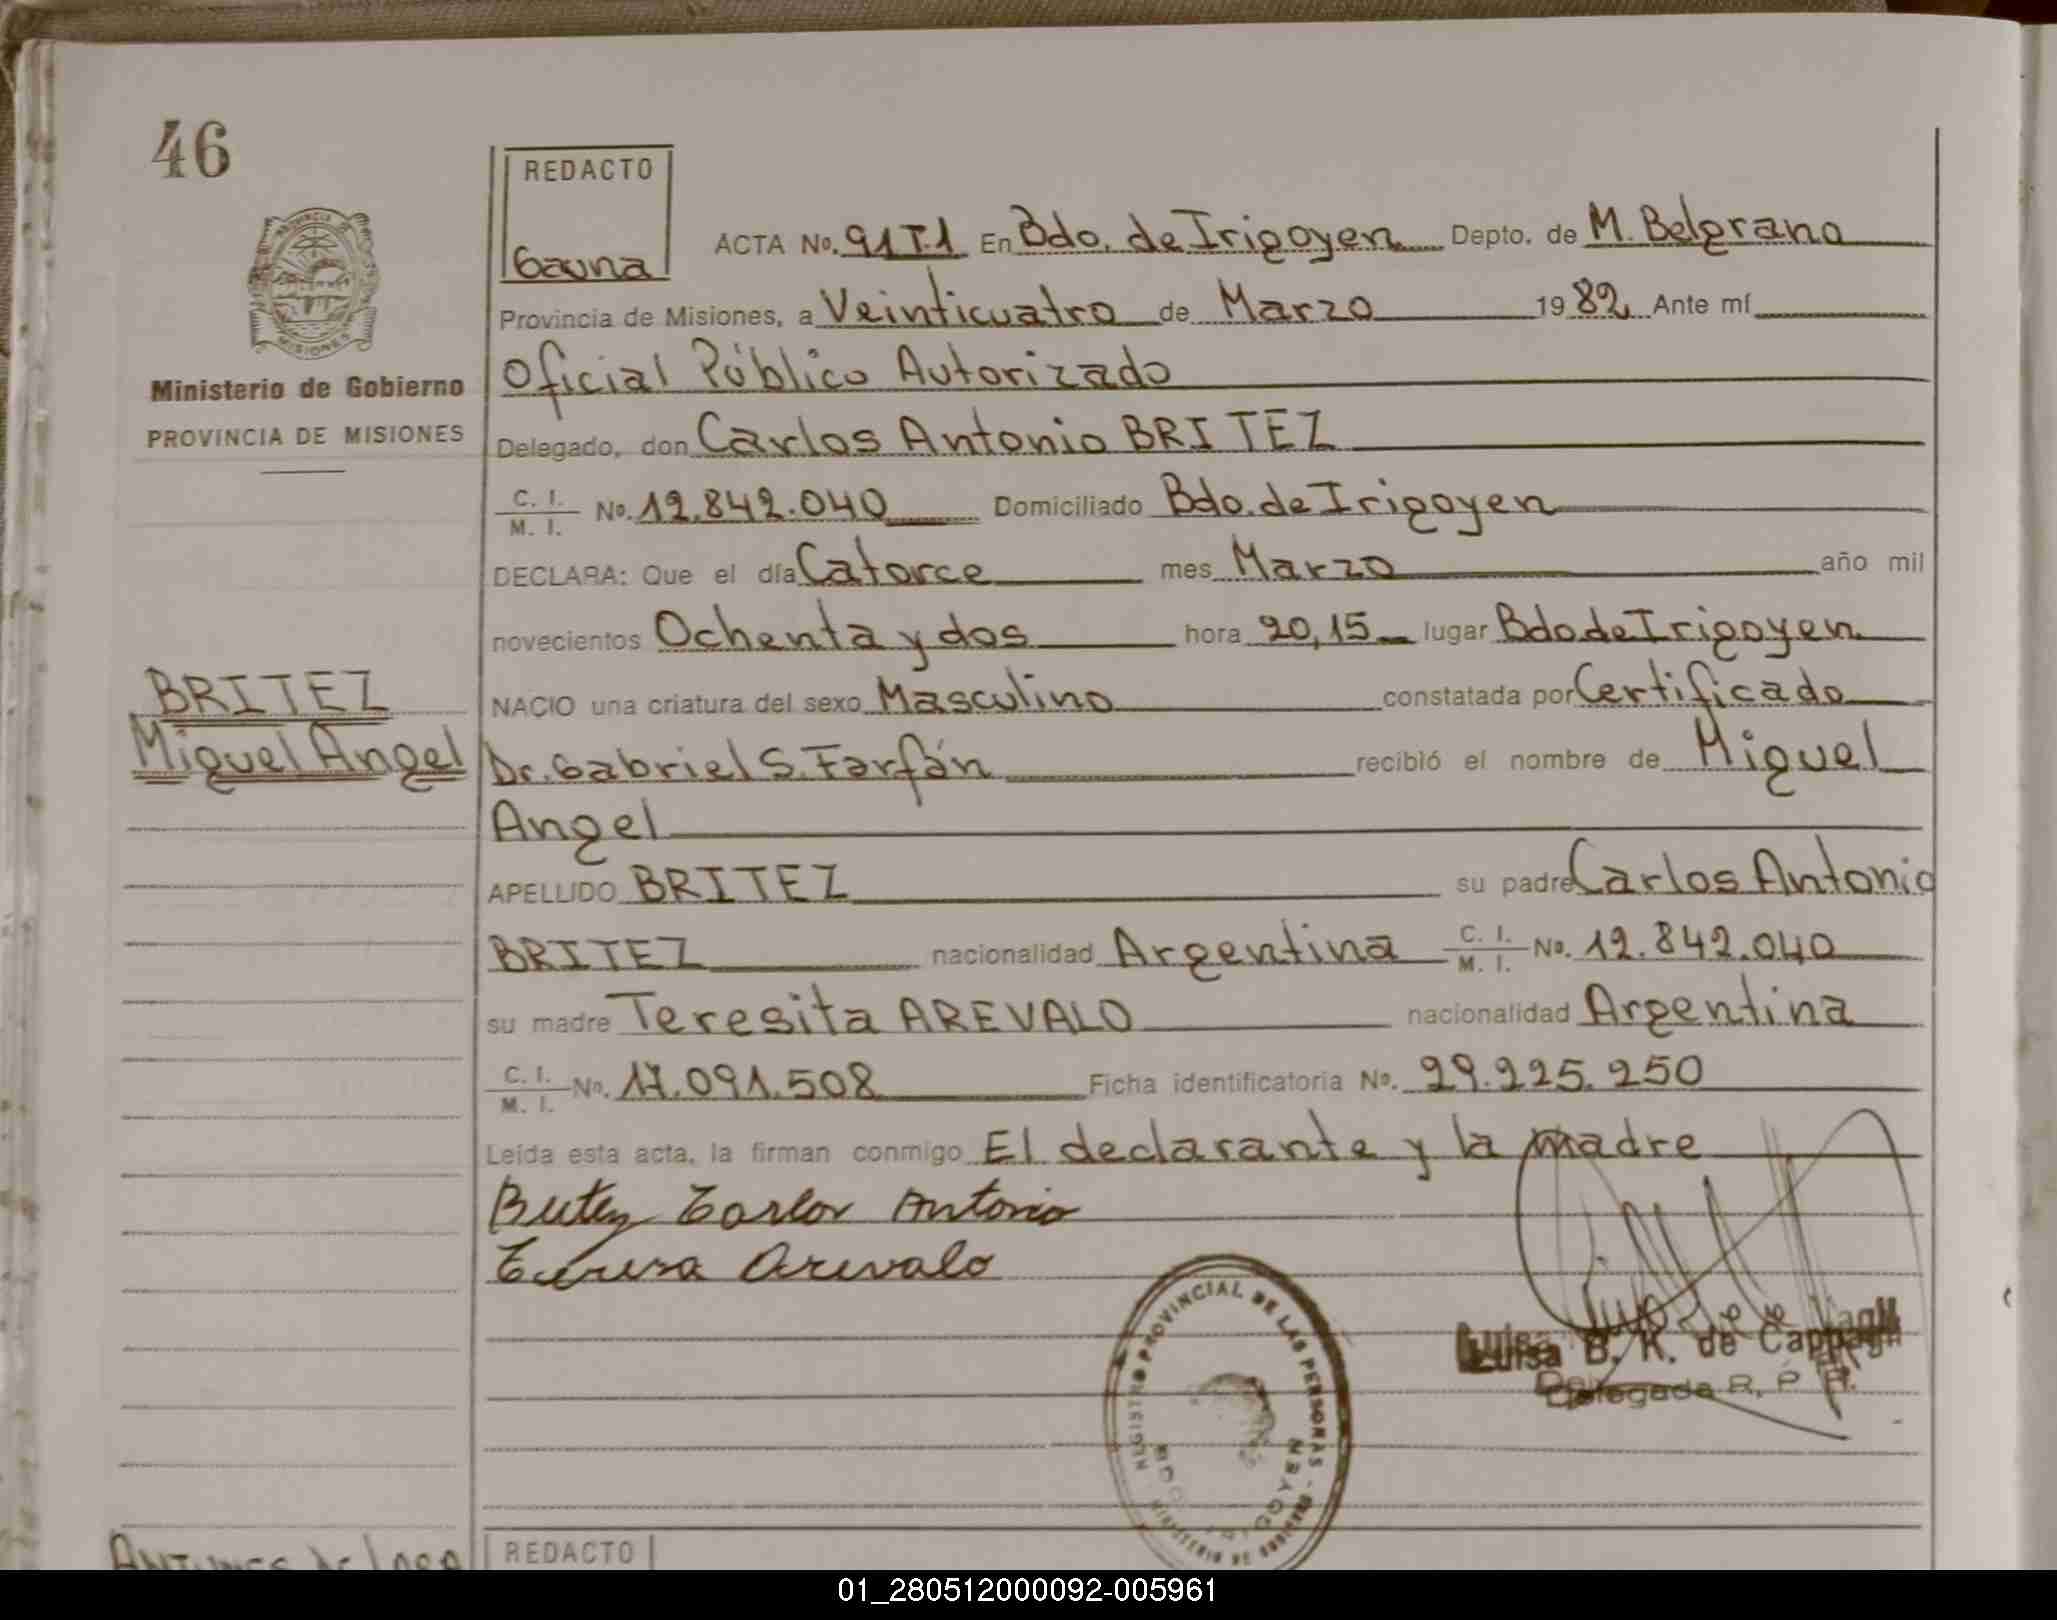 46
REDACTO
Gauna
ACTA No. 91 T.1 En Bdo. de Irigoyen Depto. de M. Belgrano
Provincia de Misiones, a Veinticuatro de Marzo 1982 Ante mí
Oficial Público Autorizado
Ministerio de Gobierno
PROVINCIA DE MISIONES
Delegado, don Carlos Antonio BRITEZ
C. I.
M. I. No. 12.842.040 Domiciliado Bdo. de Irigoyen
DECLARA: Que el día Catorce mes Marzo año mil
novecientos Ochenta y dos hora 20,15 lugar Bdo de Irigoyen
BRITEZ
Miguel Angel
NACIO una criatura del sexo Masculino constatada por Certificado
Dr. Gabriel S. Farfán recibió el nombre de Miguel
Angel
APELLIDO BRITEZ su padre Carlos Antonio
BRITEZ nacionalidad Argentina C. I. M. I. No. 12.842.040
su madre Teresita AREVALO nacionalidad Argentina
C. I. M. I. No. 17.091.508 Ficha identificatoria No. 29.225.250
Leída esta acta, la firman conmigo El declarante y la madre
Britez Carlos Antonio
Teresa Arevalo
REGISTRO PROVINCIAL DE LAS PERSONAS - MINISTERIO DE GOBIERNO
BDO IRIGOYEN
Luisa B. K. de Cappagli
Delegada R. P. P.
REDACTO
01_280512000092-005961